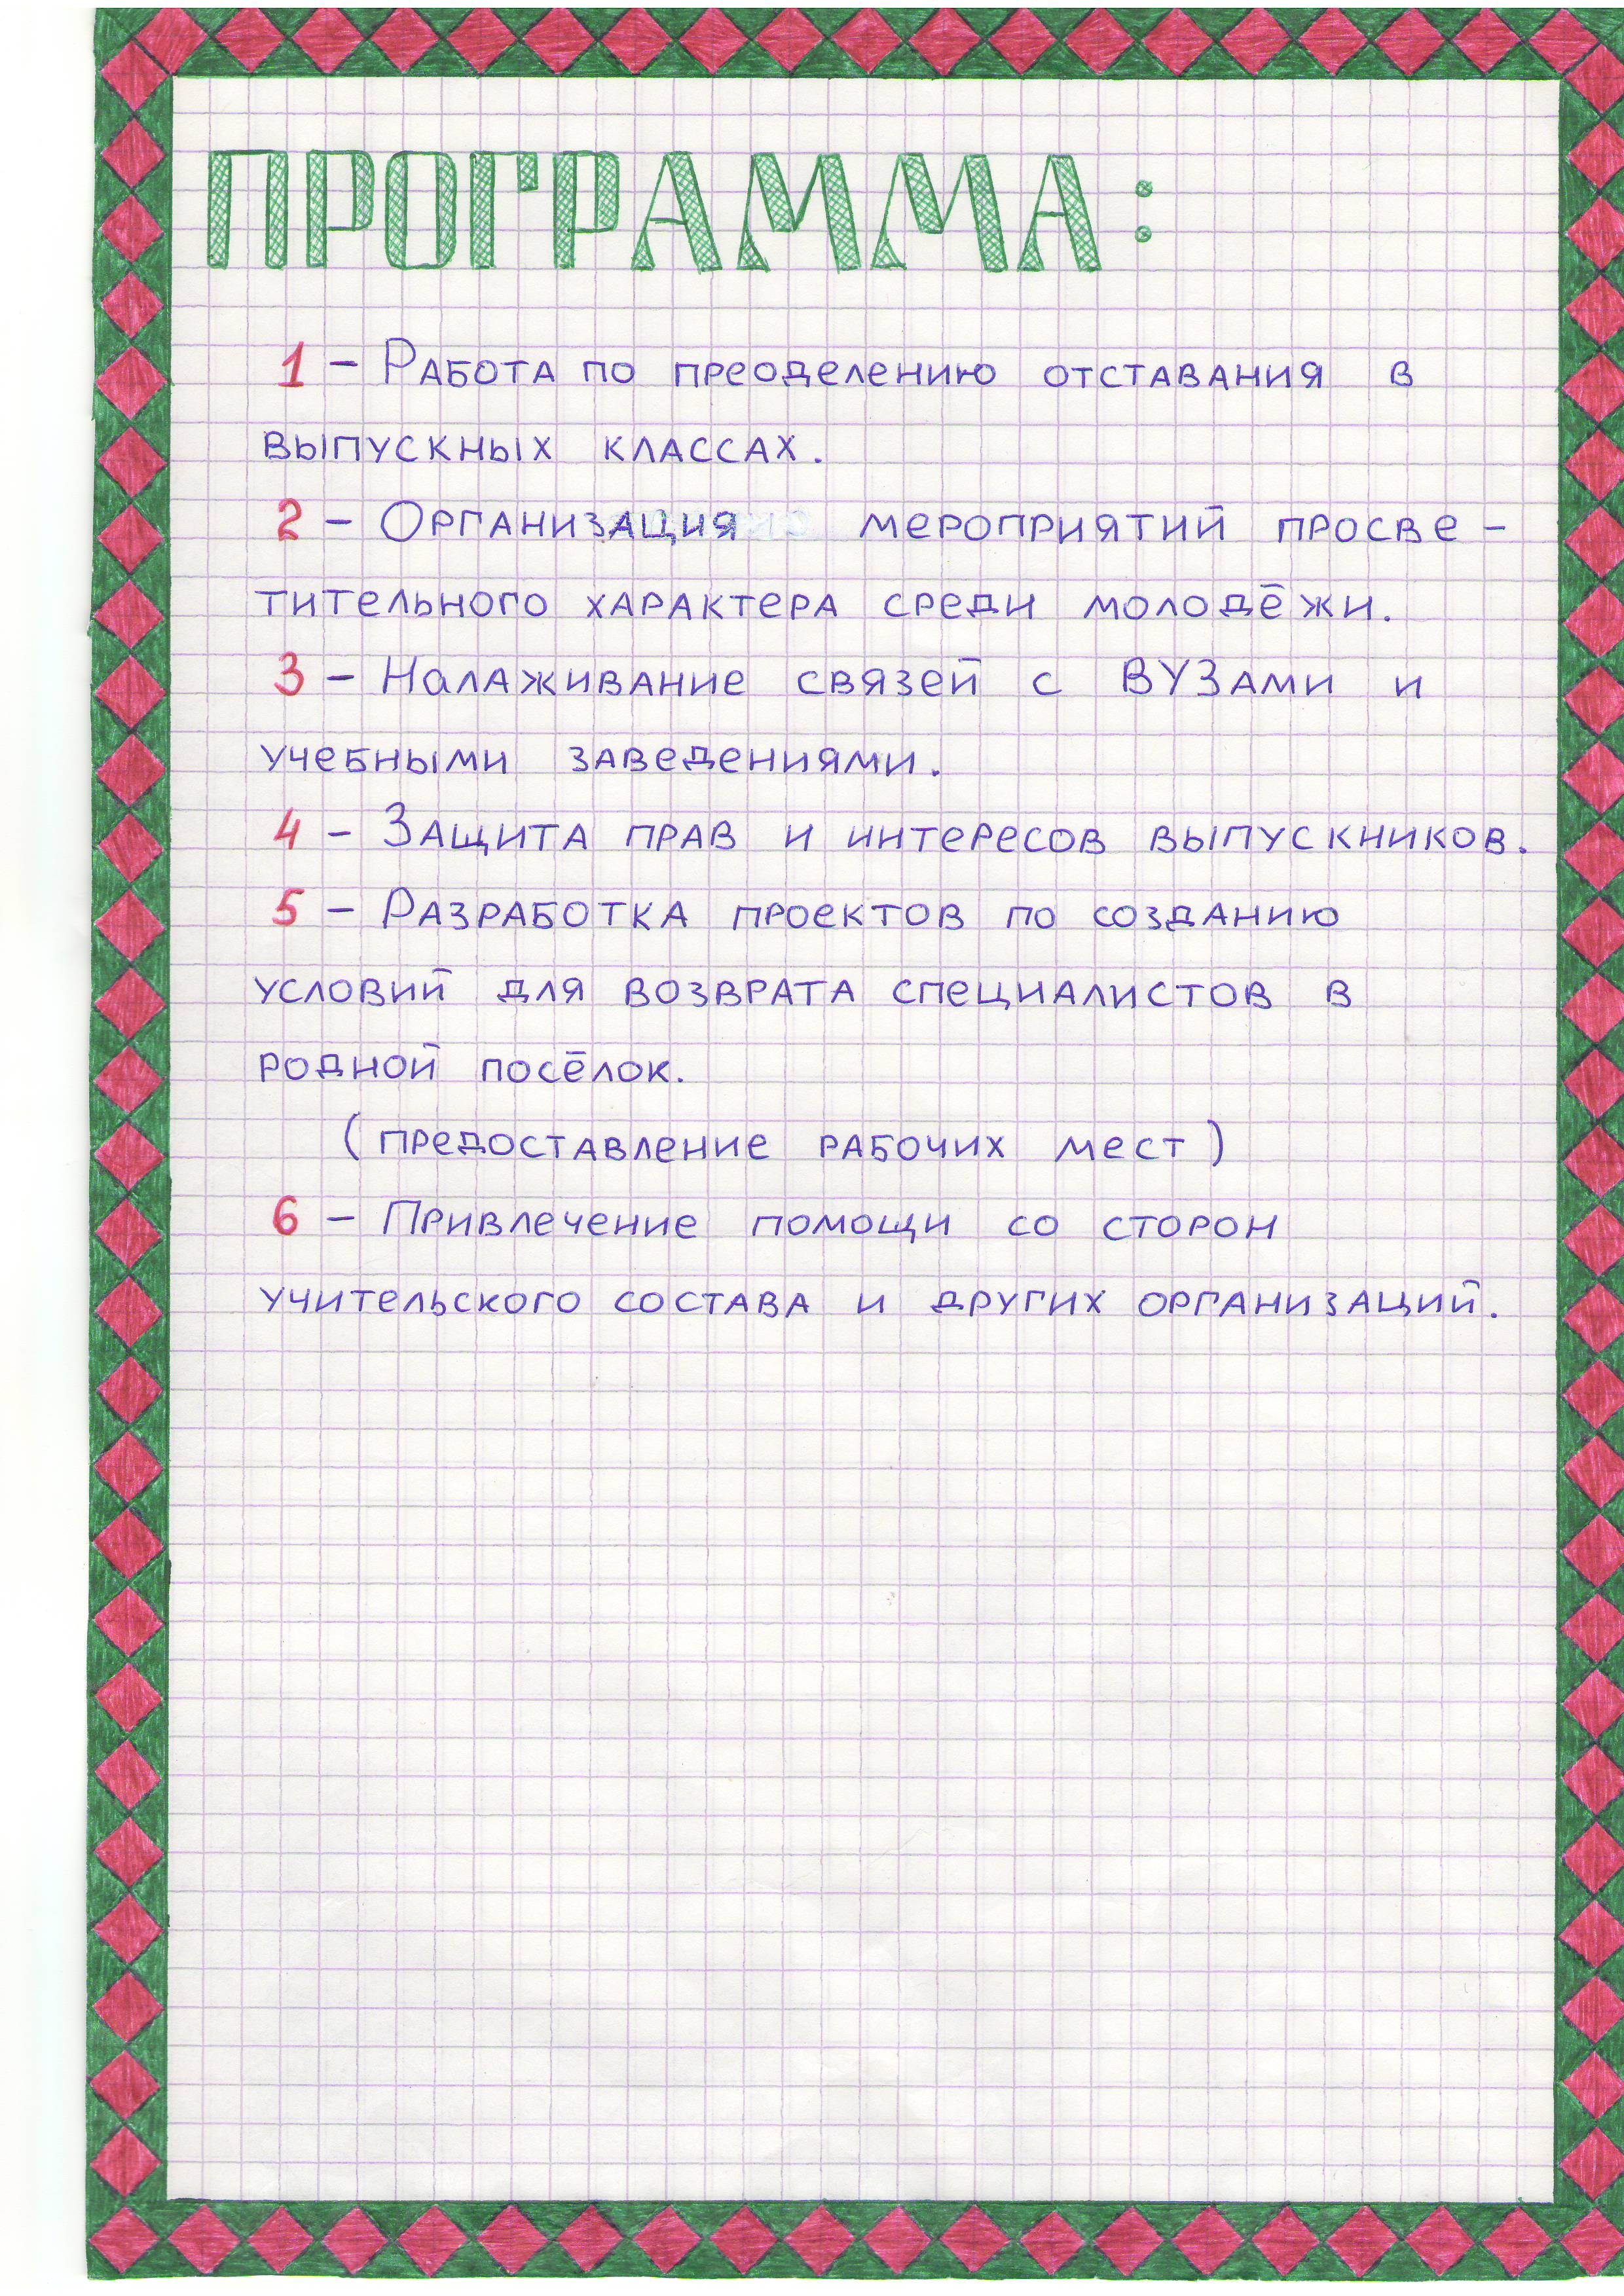 ПРОГРАММА:
1 – Работа по преоделению отставания в
выпускных классах.
2 – Организация мероприятий просве-
тительного характера среди молодёжи.
3 – Налаживание связей с ВУЗами и
учебными заведениями.
4 – Защита прав и интересов выпускников.
5 – Разработка проектов по созданию
условий для возврата специалистов в
родной посёлок.
(предоставление рабочих мест)
6 – Привлечение помощи со сторон
учительского состава и других организаций.